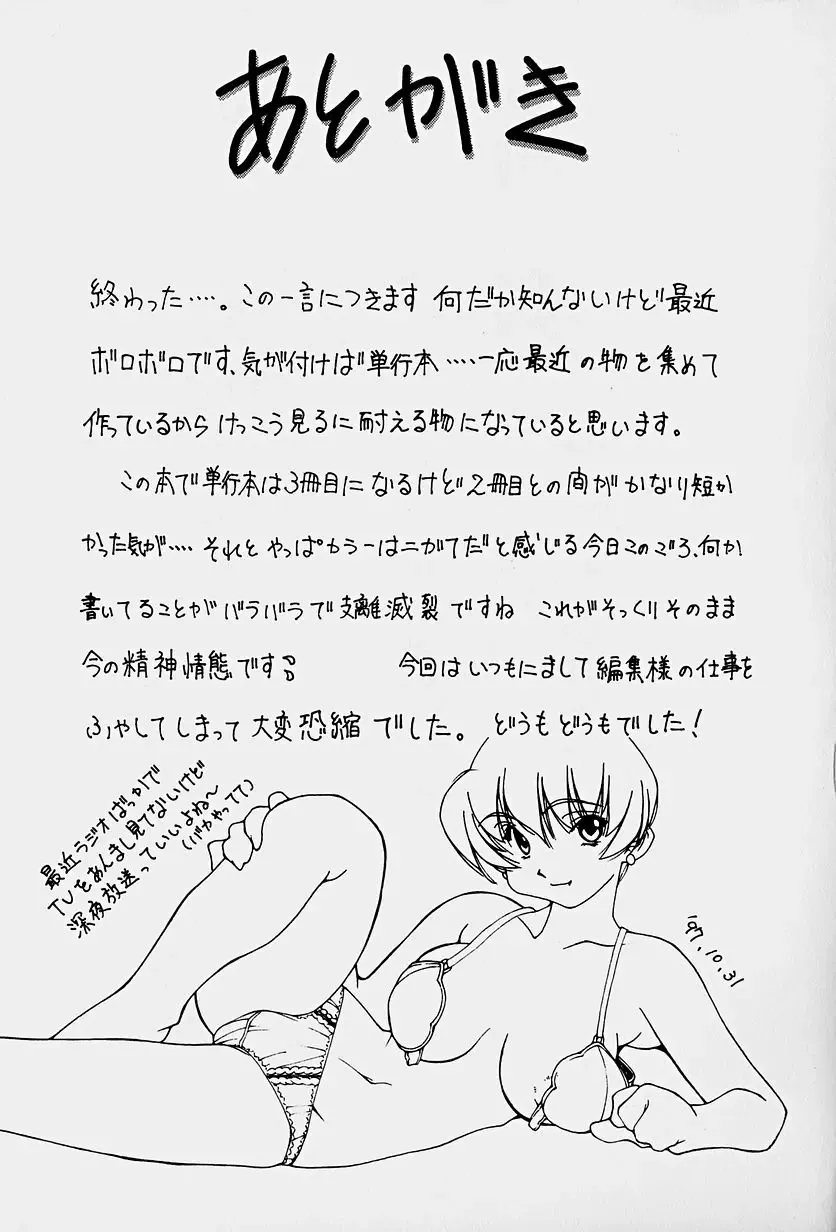 あとがき
終わった・・・・。この一言につきます 何だか知んないけど最近
ボロボロです、気が付けば単行本・・・・一応最近の物を集めて
作っているからけっこう見るに耐える物になっていると思います。
この本で単行本は3冊目になるけど2冊目との間がかなり短か
かった気が・・・・それとやっぱカラーはニがてだと感じる今日このごろ、何か
書いてることがバラバラで支離滅裂ですね これがそっくりそのまま
今の精神情態です 今回はいつもにまして編集様の仕事を
ふやしてしまって大変恐縮でした。どうもどうもでした!
最近ラジオばっかで
TVをあんまし見てないけど
深夜放送っていいよね〜
(バカやってて)
'97.10.31